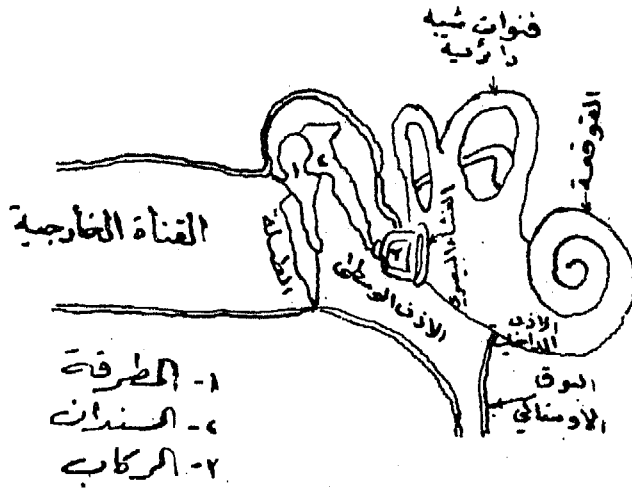 قنوات شبه
دائرية
القوقعة
القناة الخارجية
الطبلة
١
٢
٣
الأذن الوسطى
الغشاء
الأذن
الداخلية
البوق
الاوستاكي
١- المطرقة
٢- السندان
٣- الركاب